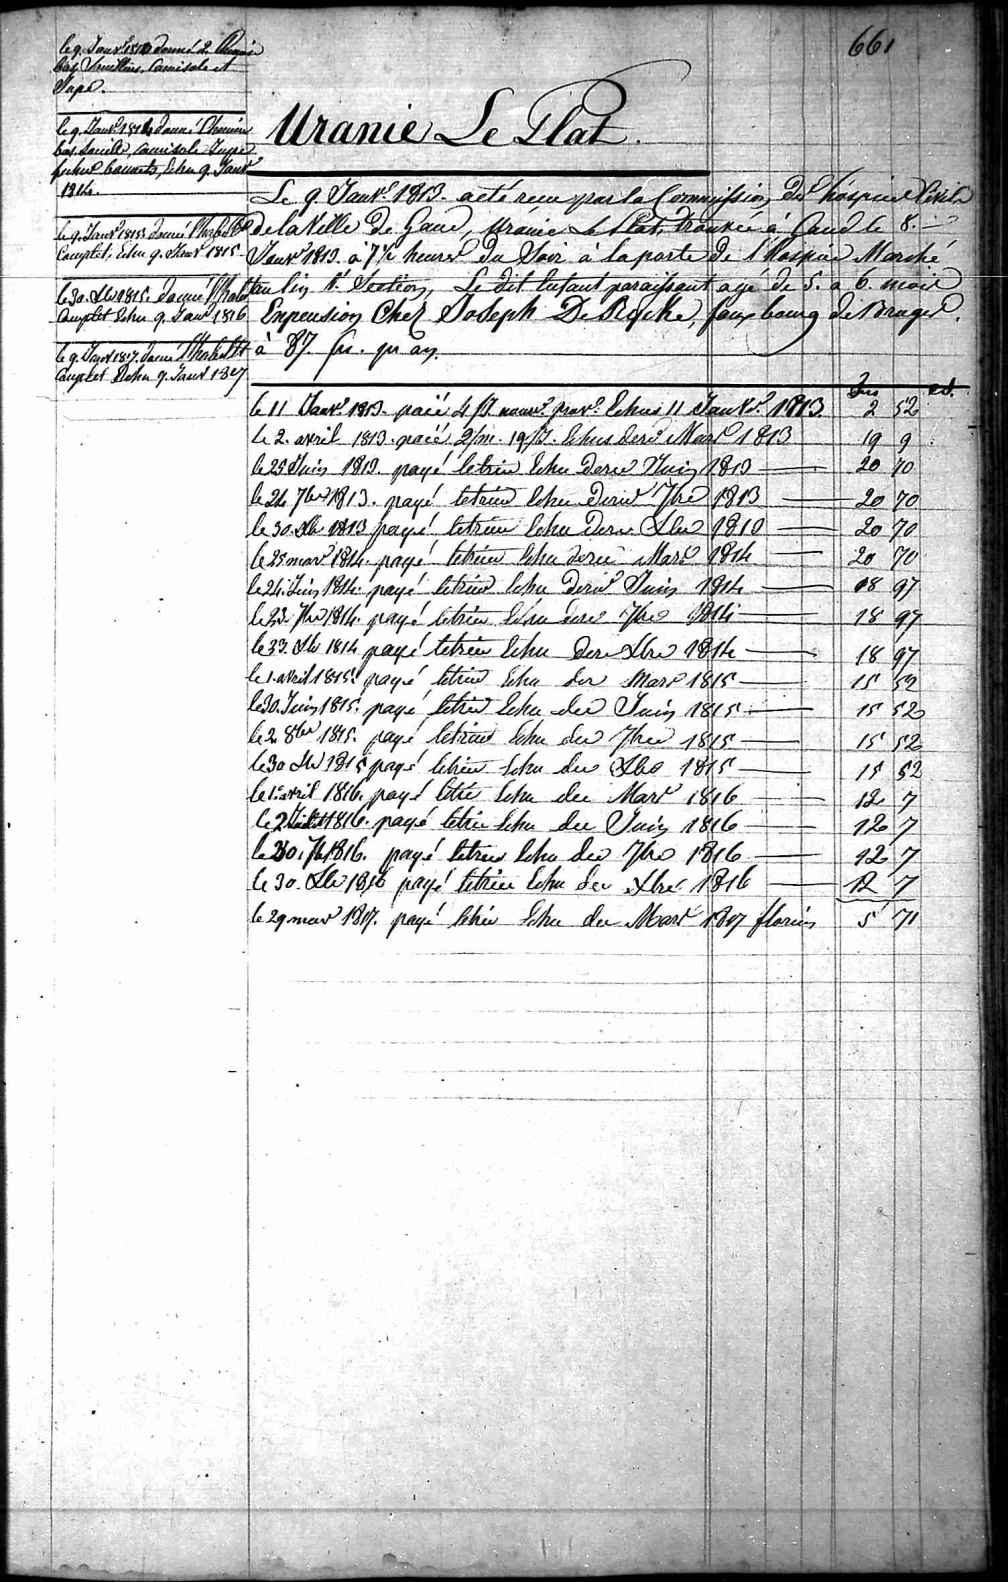 661
le 9. Janv.r 1813 donné 2 Chemis
bas, Souliers, Camisole et
Jupe.
le 9. Janv.r 1814 donné Chemise
bas, Soulié, camisole Jupe
fichu bonnets, Echu 9. Janv.r
1814.
le 9. Janv.r 1815 donné l'habillt
Complet, Echu 9. Janv.r 1815.
le 30. Xbre 1815. donné l'habt
Complet Echu 9. Janv 1816
le 9. Janv 1817. donné l'habillt
Complet Echu 9. Janv 1817
Uranie Le Plat.
Le 9. Janv.r 1813. a été recu par la Commission des hospices Civils
de la Ville de Gand, Uranie Le Plat, trouvée à Gand le 8.
Janv.r 1813. à 7 ½ heures du Soir à la porte de l'hospice Marché
au lin 1.e Section, Le dit Enfant paraissant agé de 5. a 6. mois
En pension Chez Joseph De , fauxbourg de Bruges.
à 87. frs. par an.
frs ct.
le 11 Janv.r 1813. paié 4 fl nourr.e prov.e Echus 11 Janv.r 1813 2 52
le 2. avril 1813. paié 2/m. 19/fl. Echus der.r Mars 1813 19 9
le 25 Juin 1813. payé letrim Echu dernr Juin 1813 20 70
le 24 7bre 1813. payé letrim Echu dernr 7bre 1813 20 70
le 30. Xbre 1813 payé letrim Echu dernr Xbre 1813 20 70
le 25 mars 1814. payé letrim Echu dernr Mars 1814 20 70
le 24. Juin 1814. payé letrim Echu dernr Juin 1814 18 97
le 23. 7bre 1814. payé letrim Echu dernr 7bre 1814 18 97
le 33. Xbre 1814 payé letrim Echu der Xbre 1814 18 97
le 1. avril 1815. payé letrim Echu der Mars 1815 15 52
le 30. Juin 1815. payé letrim Echu der Juin 1815 15 52
le 2 8bre 1815. payé letrim Echu der 7bre 1815 15 52
le 30 Xbre 1815 payé letrim Echu der Xbre 1815 15 52
le 1.r avril 1816. payé letri Echu der Mars 1816 12 7
le 2 Juillet 1816. payé letrim Echu der Juin 1816 12 7
le 30. 7b 1816. payé letrim Echu der 7bre 1816 12 7
le 30. Xbre 1816 payé letrim Echu der Xbre 1816 12 7
le 29 mars 1817. payé letrim Echu der Mars 1817 florins 5 71